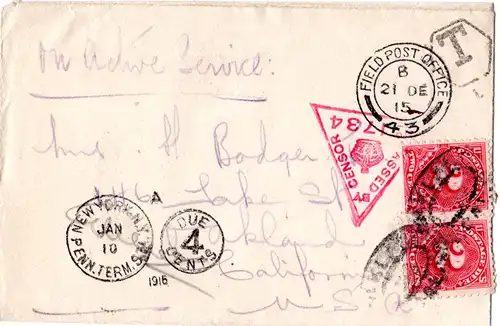 On Active Service.
FIELD POST OFFICE
B
21 DE
15
43
T
PASSED BY CENSOR
734
Miss H Badger
146 Lake St
Oakland
California
U.S.A
NEW YORK, N.Y.
A
JAN
10
PENN. TERM. STA.
1916
DUE
4
CENTS